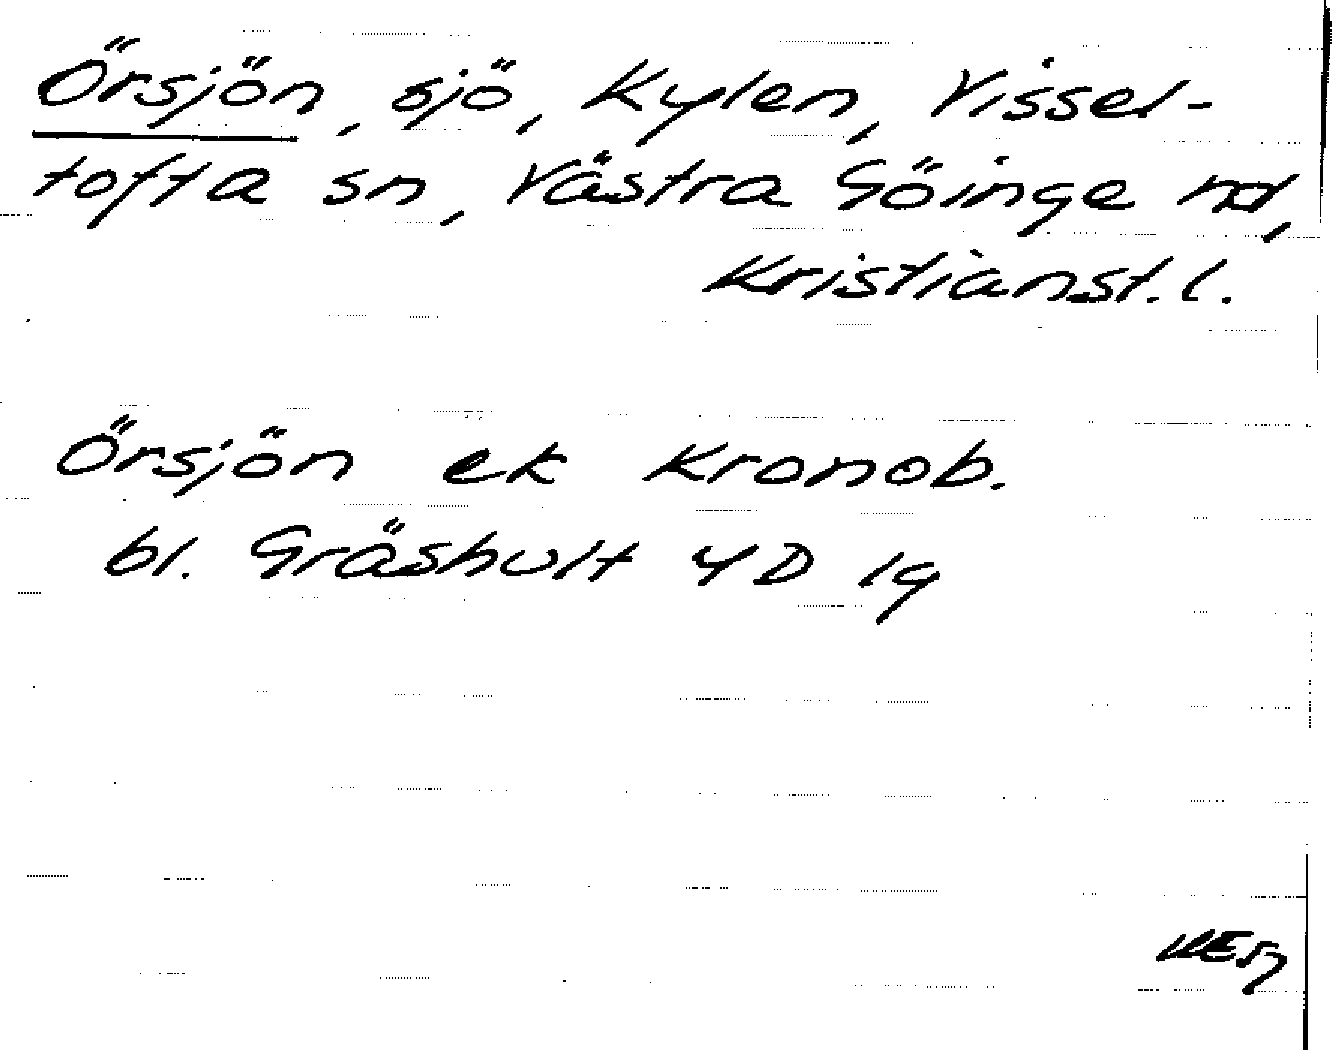 Örsjön, sjö, Kylen, Vissel-
tofta sn, Västra Göinge hd,
Kristianst. l.
Örsjön ek Kronob.
bl. Gräshult 4D 1g